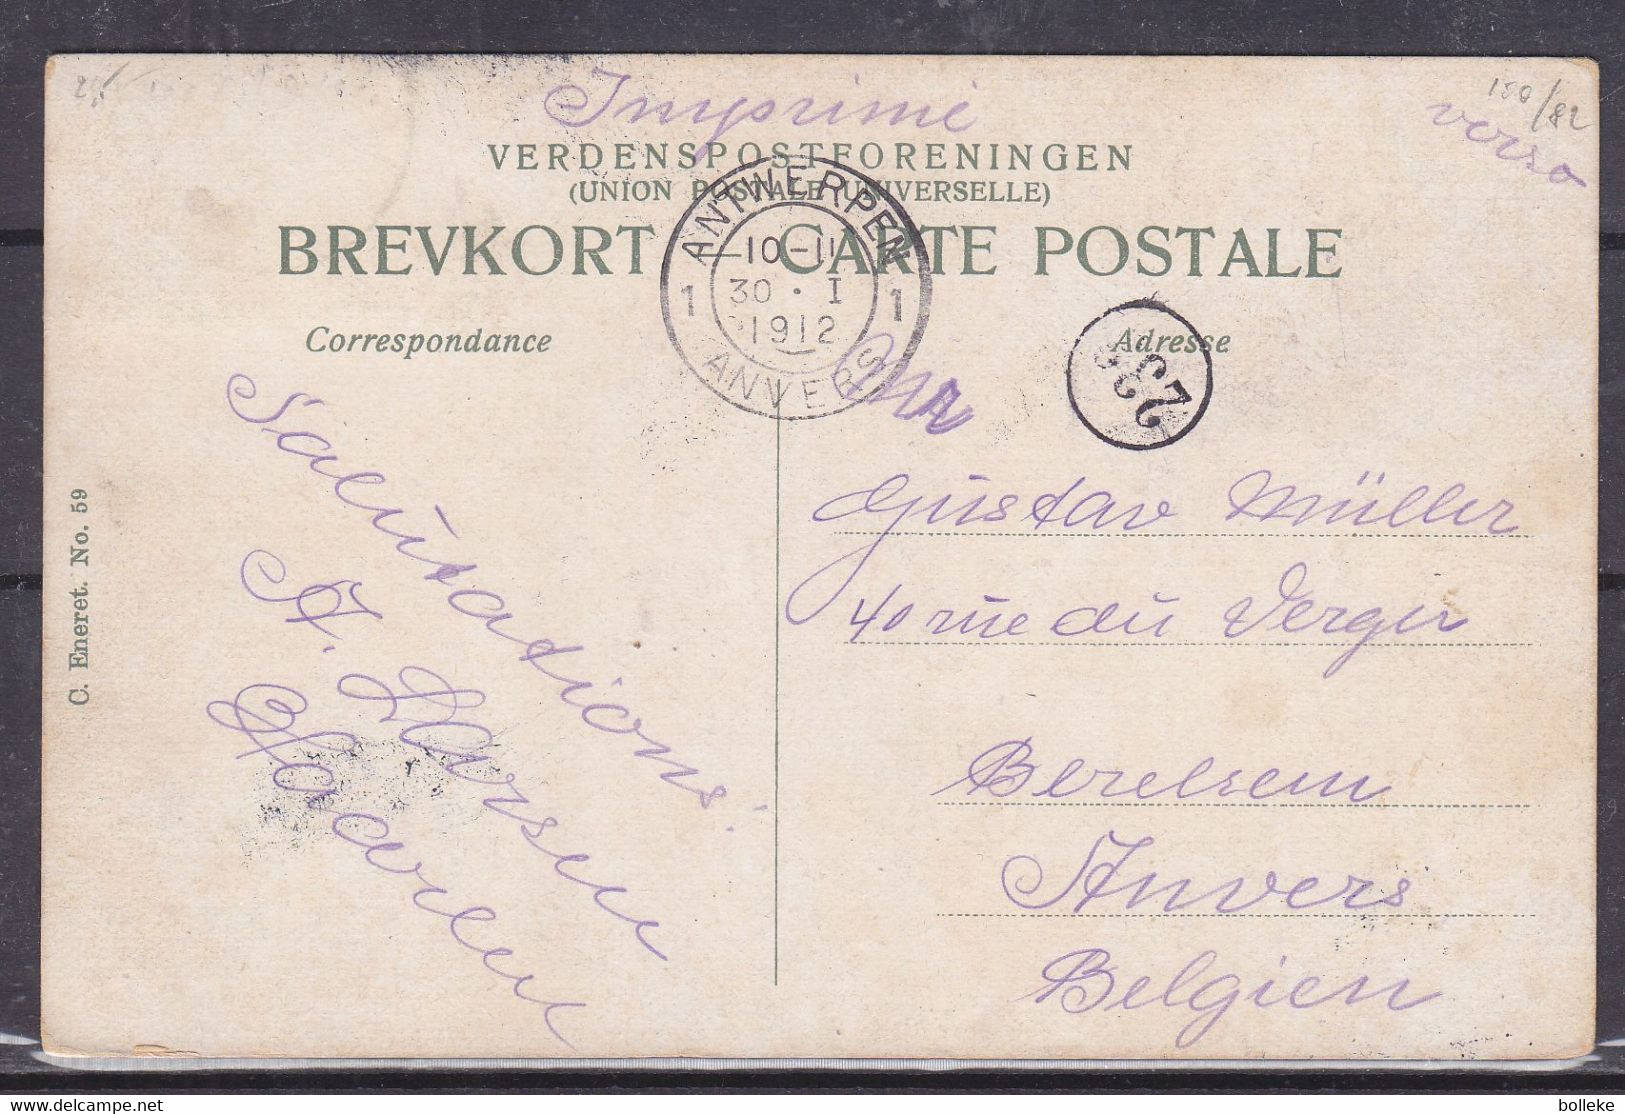 Imprimé
150/82
verso
VERDENSPOSTFORENINGEN
(UNION POSTALE UNIVERSELLE)
BREVKORT CARTE POSTALE
ANTWERPEN
10-11
1 30·I 1
1912
ANVERS
Correspondance
Adresse
233
Salutations
A. Larsen
C. Eneret. No. 59
Gustav Müller
40 rue du Verger
Berchem
Anvers
Belgien
bolleke